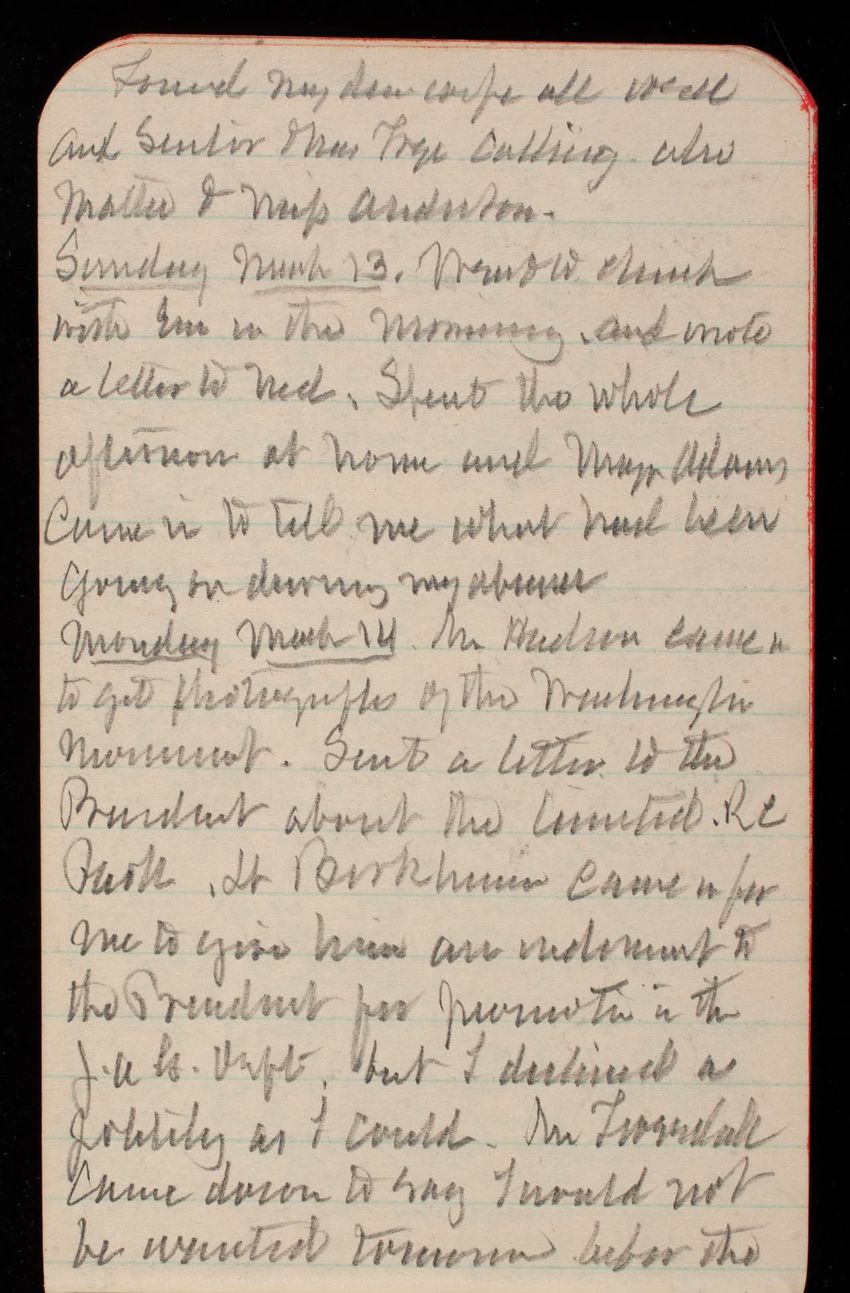 Found my dear wife all well
and Senator & Mrs Frye calling. also
Mattie & Miss Anderson.
Sunday March 13. Went to church
with Em in the morning, and wrote
a letter to Ned. Spent the whole
afternoon at home and Major Adams
came in to tell me what had been
going on during my absence
Monday March 14 Mr Hudson came in
to get photographs of the Washington
Monument. Sent a letter to the
President about the limited. R C
Park. Lt Birkhimer came in for
me to give him an indorsement to
the President for promotion in the
J. A. G. Dept. but I declined as
politely as I could. Mr Truesdell
came down to say I would not
be wanted tomorrow before the